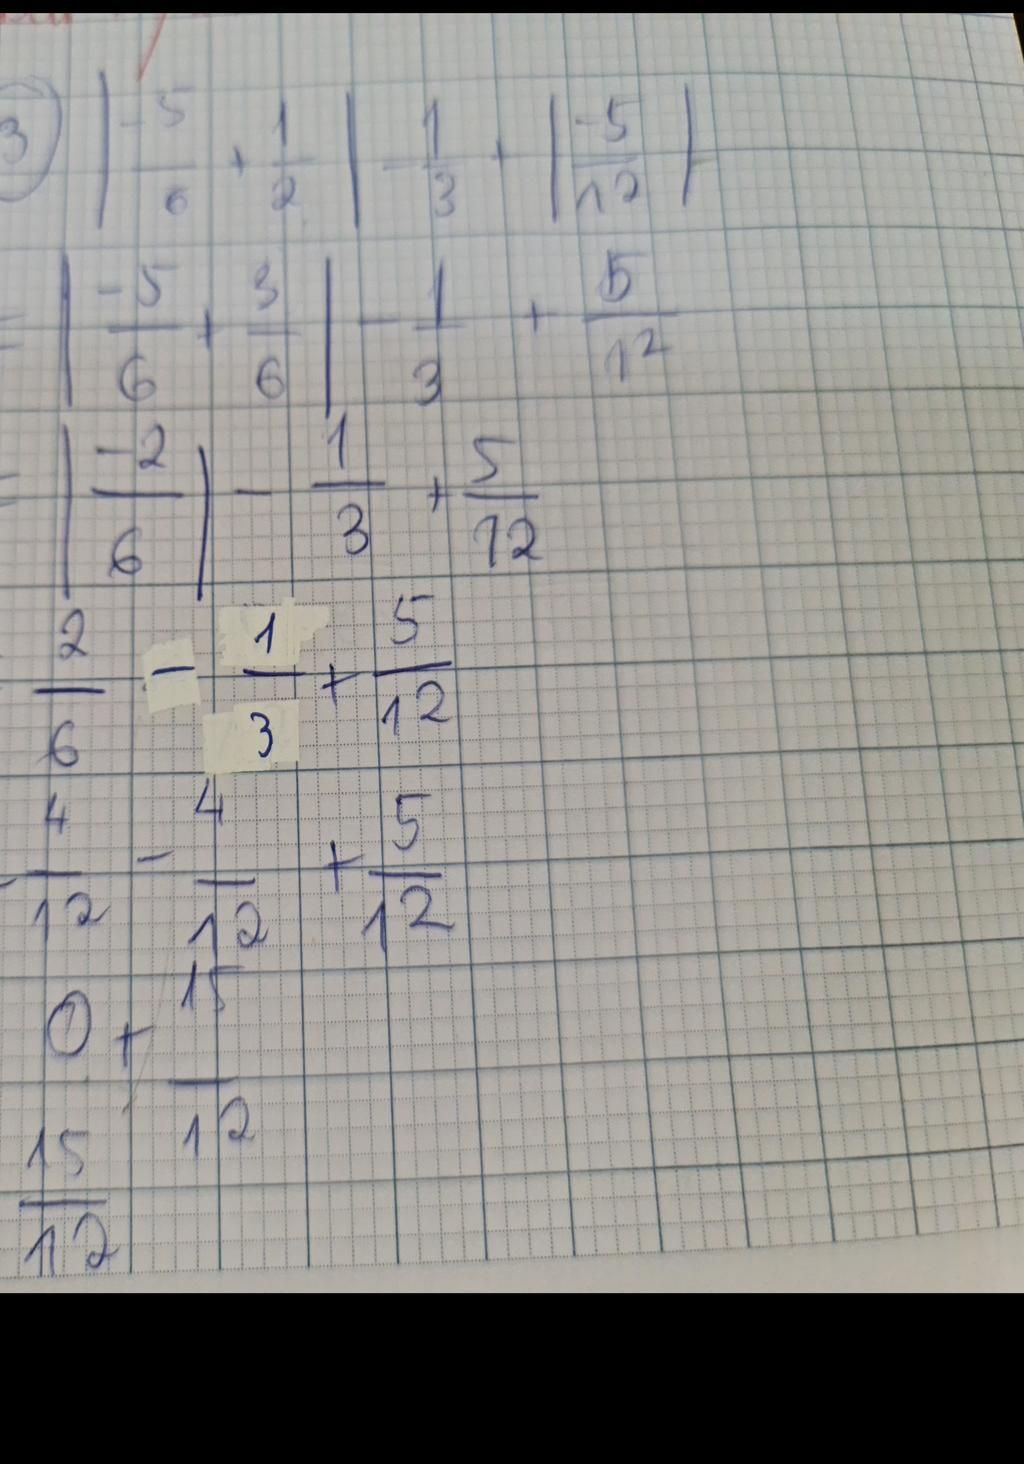 3 | -5/6 + 1/2 | - 1/3 + | -5/12 |
= | -5/6 + 3/6 | - 1/3 + 5/12
= | -2/6 | - 1/3 + 5/12
2/6 - 1/3 + 5/12
- 4/12 - 4/12 + 5/12
0 + 15/12
15/12